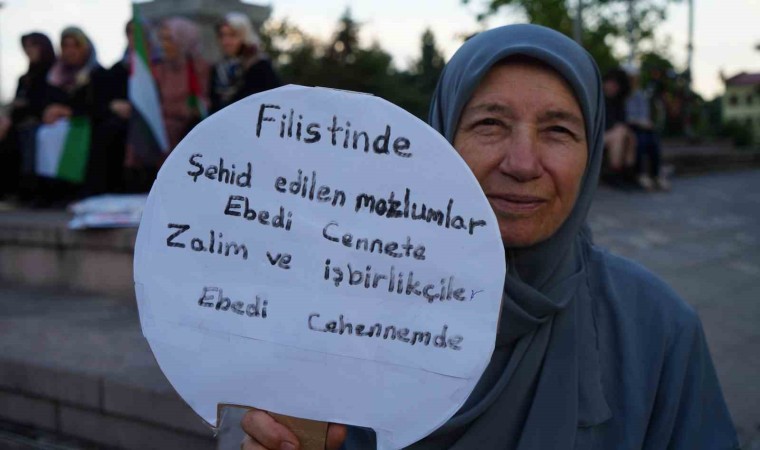 Filistinde
Şehid edilen mazlumlar
Ebedi Cennete
Zalim ve işbirlikçiler
Ebedi Cehennemde